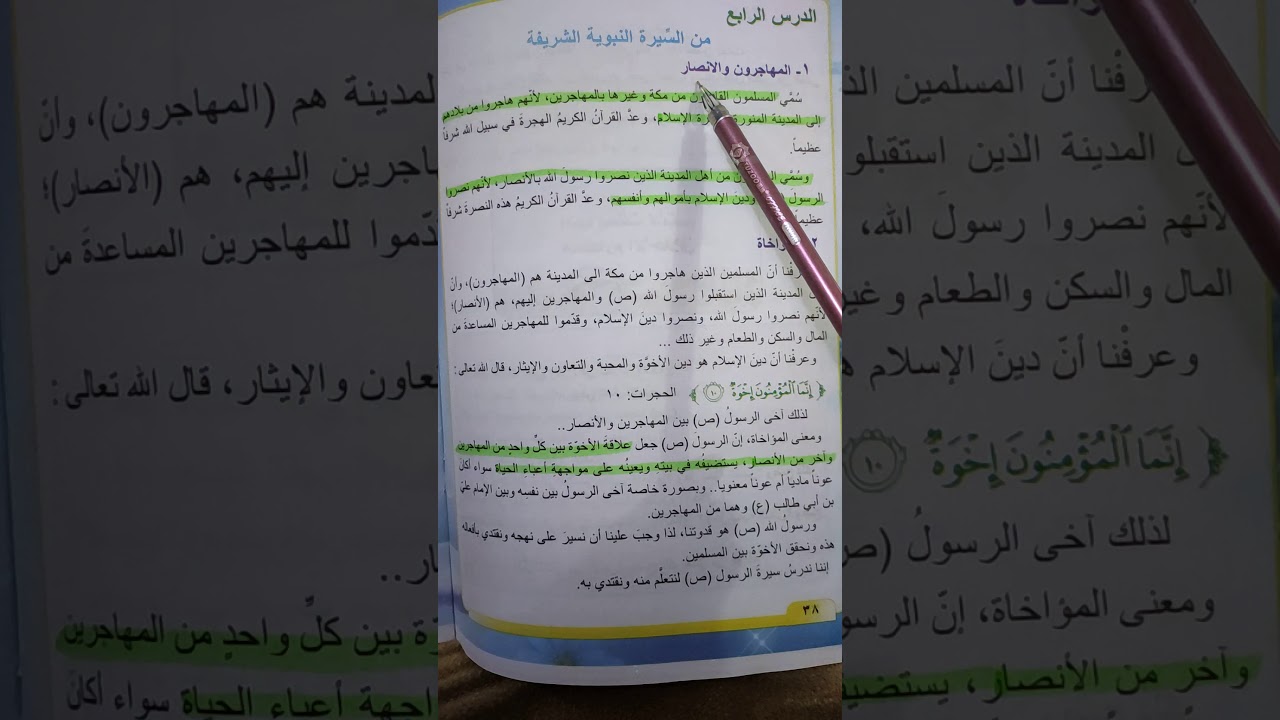 الدرس الرابع
من السِّيرة النبوية الشريفة
١ـ المهاجرون والانصار
سُمِّي المسلمون من مكة وغيرها بالمهاجرين، لأنّهم هاجروا من بلادهم
إلى المدينة المنورة الإسلام، وعدَّ القرآنُ الكريمُ الهجرةَ في سبيل الله شرفاً
عظيماً.
وسُمِّي من أهل المدينة الذين نصروا رسولَ الله بالأنصار، لأنّهم نصروا
الرسول ودين الإسلام بأموالهم وأنفسهم، وعدَّ القرآنُ الكريمُ هذه النصرةَ شرفاً
عظيماً
٢
أنّ المسلمين الذين هاجروا من مكة الى المدينة هم (المهاجرون)، وأنّ
المدينة الذين استقبلوا رسولَ الله (ص) والمهاجرين إليهم، هم (الأنصار)؛
لأنّهم نصروا رسولَ الله، ونصروا دينَ الإسلام، وقدّموا للمهاجرين المساعدةَ من
المال والسكن والطعام وغير ذلك ...
وعرفْنا أنّ دينَ الإسلام هو دين الأخوَّة والمحبة والتعاون والإيثار، قال الله تعالى:
﴿ إِنَّمَا ٱلْمُؤْمِنُونَ إِخْوَةٌ ١٠ ﴾ الحجرات: ١٠
لذلك آخى الرسولُ (ص) بين المهاجرين والأنصار..
ومعنى المؤاخاة، إنّ الرسولَ (ص) جعل علاقةَ الأخوّة بين كلِّ واحدٍ من المهاجرين
وآخر من الأنصار، يستضيفُه في بيته ويعينُه على مواجهةِ أعباءِ الحياة سواء أكانَ
عوناً مادياً أم عوناً معنويا.. وبصورة خاصة آخى الرسولُ بين نفسِه وبين الإمام عليّ
بن أبي طالب (ع) وهما من المهاجرين.
ورسولُ الله (ص) هو قدوتنا، لذا وجبَ علينا أن نسيرَ على نهجه ونقتدي بأفعاله
هذه ونحقق الأخوّة بين المسلمين.
إننا ندرسُ سيرةَ الرسول (ص) لنتعلَّم منه ونقتدي به.
٣٨